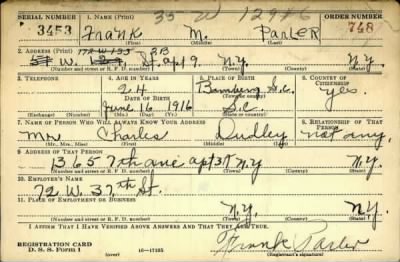 35 W 12976
SERIAL NUMBER 1. NAME (Print) ORDER NUMBER
3453 Frank M. Parler 748
(First) (Middle) (Last)
2. ADDRESS (Print) 172 W 133 3B
W. St. apt 9. N.Y. N.Y.
(Number and street or R. F. D. number) (Town) (County) (State)
3. TELEPHONE 4. AGE IN YEARS 5. PLACE OF BIRTH 6. COUNTRY OF CITIZENSHIP
24 Bamberg S.C. yes.
DATE OF BIRTH
June 16, 1916 S.C.
(Exchange) (Number) (Mo.) (Day) (Yr.) (State or country)
7. NAME OF PERSON WHO WILL ALWAYS KNOW YOUR ADDRESS 8. RELATIONSHIP OF THAT PERSON
Mr Charles Dudley not any.
(Mr., Mrs., Miss) (First) (Middle) (Last)
9. ADDRESS OF THAT PERSON
1365 7th ave apt 37 N.Y N.Y.
(Number and street or R. F. D. number) (Town) (County) (State)
10. EMPLOYER'S NAME
72 W. 37th St.
11. PLACE OF EMPLOYMENT OR BUSINESS
N.Y. N.Y.
(Number and street or R. F. D. number) (Town) (County) (State)
I AFFIRM THAT I HAVE VERIFIED ABOVE ANSWERS AND THAT THEY ARE TRUE.
Frank Parler
REGISTRATION CARD
D. S. S. Form 1 (over) 16—17105 (Registrant's signature)